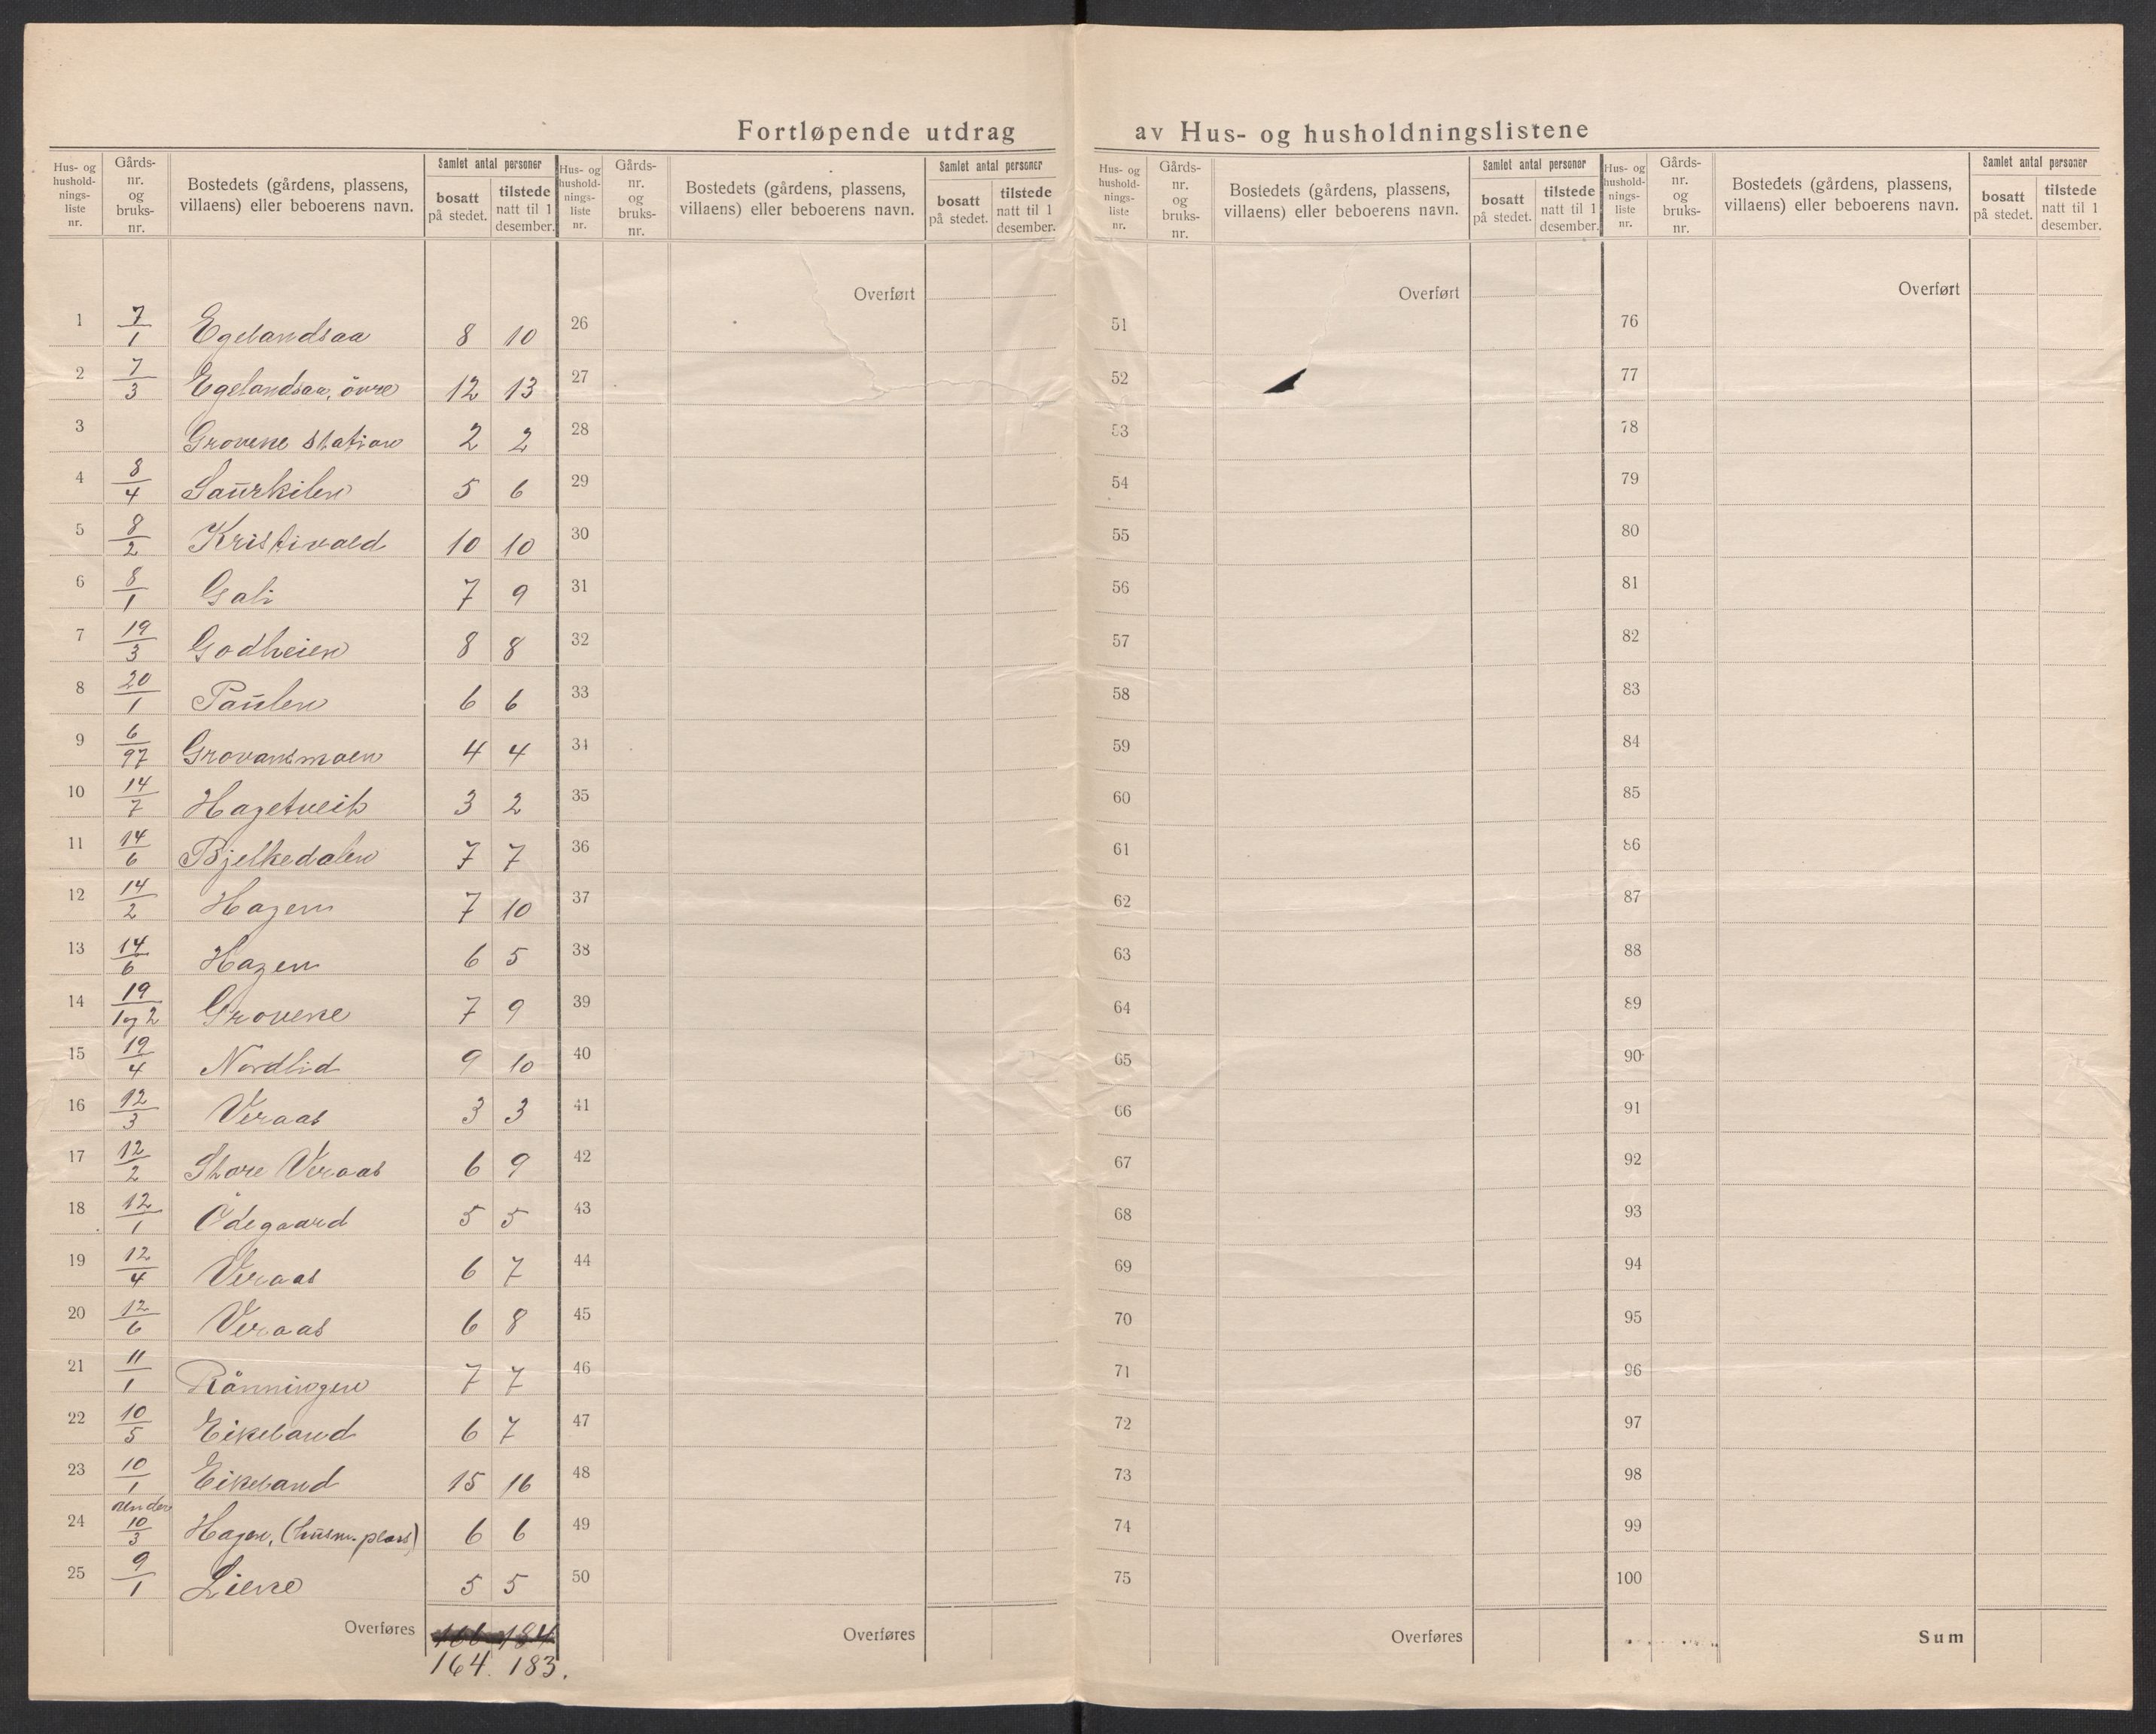 Fortløpende utdrag av Hus- og husholdningslistene
Hus- og husholdnings- liste nr. Gårds- nr. og bruks- nr. Bostedets (gårdens, plassens, villaens) eller beboerens navn. Samlet antal personer bosatt på stedet. tilstede natt til 1 desember.
Hus- og husholdnings- liste nr. Gårds- nr. og bruks- nr. Bostedets (gårdens, plassens, villaens) eller beboerens navn. Samlet antal personer bosatt på stedet. tilstede natt til 1 desember.
Hus- og husholdnings- liste nr. Gårds- nr. og bruks- nr. Bostedets (gårdens, plassens, villaens) eller beboerens navn. Samlet antal personer bosatt på stedet. tilstede natt til 1 desember.
Hus- og husholdnings- liste nr. Gårds- nr. og bruks- nr. Bostedets (gårdens, plassens, villaens) eller beboerens navn. Samlet antal personer bosatt på stedet. tilstede natt til 1 desember.
Overført Overført Overført
1 7/1 Egelandsaa 8 10 26 51 76
2 7/3 Egelandsaa, övre 12 13 27 52 77
3 Grovene station 2 2 28 53 78
4 8/4 Saurkilen 5 6 29 54 79
5 8/2 Kristivold 10 10 30 55 80
6 8/1 Gali 7 9 31 56 81
7 19/3 Godheien 8 8 32 57 82
8 20/1 Paulen 6 6 33 58 83
9 6/97 Grovansmoen 4 4 34 59 84
10 14/7 Hagetveit 3 2 35 60 85
11 14/6 Bjelkedalen 7 7 36 61 86
12 14/2 Hagen 7 10 37 62 87
13 14/6 Hagen 6 5 38 63 88
14 19/1og2 Grovene 7 9 39 64 89
15 19/4 Nordlid 9 10 40 65 90
16 12/3 Veraas 3 3 41 66 91
17 12/2 Store Veraas 6 9 42 67 92
18 12/1 Ödegaard 5 5 43 68 93
19 12/4 Veraas 6 7 44 69 94
20 12/6 Veraas 6 8 45 70 95
21 11/1 Rönningen 7 7 46 71 96
22 10/5 Eikeland 6 7 47 72 97
23 10/1 Eikeland 15 16 48 73 98
24 under 10/3 Hagen, (husm. plass) 6 6 49 74 99
25 9/1 Liene 5 5 50 75 100
Overføres 166 184 Overføres Overføres Sum
164. 183.